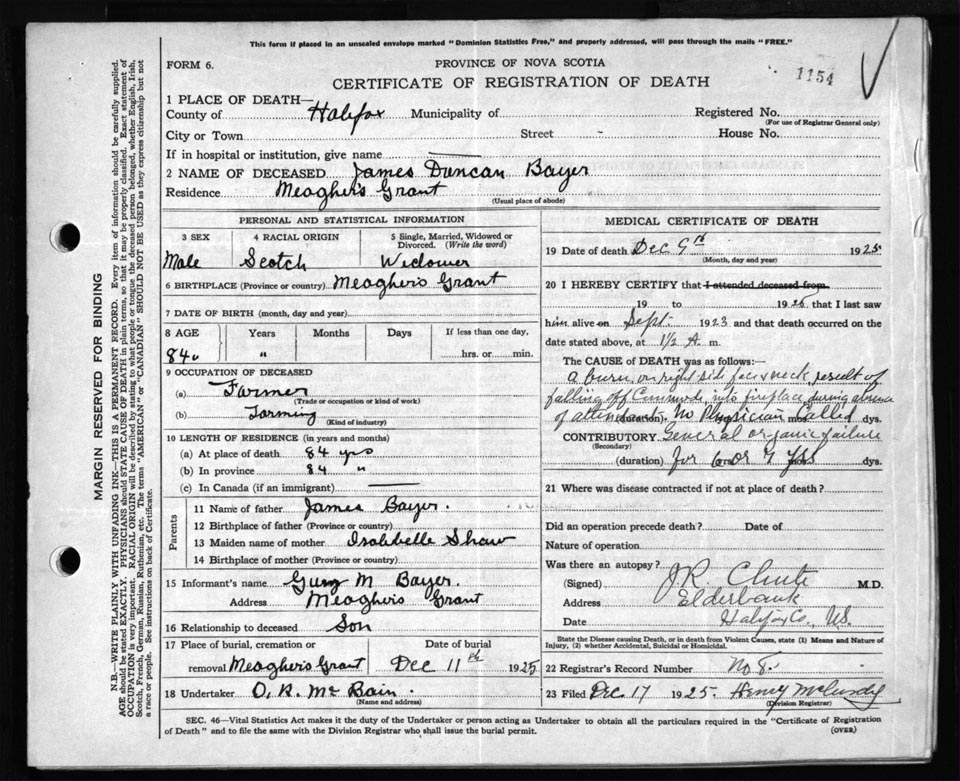 This form if placed in an unsealed envelope marked "Dominion Statistics Free," and properly addressed, will pass through the mails "FREE."
FORM 6.
PROVINCE OF NOVA SCOTIA
CERTIFICATE OF REGISTRATION OF DEATH
1154
1 PLACE OF DEATH—
County of Halifax Municipality of Registered No.
(For use of Registrar General only)
City or Town Street House No.
If in hospital or institution, give name
2 NAME OF DECEASED James Duncan Bayer
Residence Meagher's Grant
(Usual place of abode)
PERSONAL AND STATISTICAL INFORMATION
3 SEX 4 RACIAL ORIGIN 5 Single, Married, Widowed or Divorced. (Write the word)
Male Scotch Widower
6 BIRTHPLACE (Province or country) Meagher's Grant
7 DATE OF BIRTH (month, day and year)
8 AGE Years Months Days If less than one day,
84 " hrs. or min.
9 OCCUPATION OF DECEASED
(a) Farmer
(Trade or occupation or kind of work)
(b) Farming
(Kind of industry)
10 LENGTH OF RESIDENCE (in years and months)
(a) At place of death 84 yrs
(b) In province 84 "
(c) In Canada (if an immigrant)
Parents
11 Name of father James Bayer.
12 Birthplace of father (Province or country)
13 Maiden name of mother Isabbelle Shaw
14 Birthplace of mother (Province or country)
15 Informant's name M Bayer.
Address Meagher's Grant
16 Relationship to deceased Son
17 Place of burial, cremation or Date of burial
removal Meagher's Grant Dec 11th 1925
18 Undertaker O. R. McBain.
(Name and address)
MEDICAL CERTIFICATE OF DEATH
19 Date of death Dec 9th 1925
(Month, day and year)
20 I HEREBY CERTIFY that I attended deceased from
19 to 1925 that I last saw
him alive on Sept. 1923 and that death occurred on
date stated above, at 1/2 A m.
The CAUSE of DEATH was as follows:
a burn on right side face & neck, result of
falling off Commode, into fireplace during absence
of attendant. (duration) No Physician mos Called dys.
CONTRIBUTORY General organic failure
(Secondary)
(duration) for 6 or 7 yrs dys.
21 Where was disease contracted if not at place of death?
Did an operation precede death? Date of
Nature of operation
Was there an autopsy?
(Signed) J R. Chute M.D.
Address Elderbank
Date Halifax Co., N.S.
State the Disease causing Death, or in death from Violent Causes, state (1) Means and Nature of
Injury, (2) whether Accidental, Suicidal or Homicidal.
22 Registrar's Record Number No 8.
23 Filed Dec 17 1925. Henry McCurdy
(Division Registrar)
SEC. 46—Vital Statistics Act makes it the duty of the Undertaker or person acting as Undertaker to obtain all the particulars required in the "Certificate of Registration
of Death" and to file the same with the Division Registrar who shall issue the burial permit.
(OVER)
MARGIN RESERVED FOR BINDING
N.B.—WRITE PLAINLY WITH UNFADING INK—THIS IS A PERMANENT RECORD. Every item of information should be carefully supplied.
AGE should be stated EXACTLY. PHYSICIANS should STATE CAUSE OF DEATH in plain terms, so that it may be properly classified. Exact statement of
OCCUPATION is very important. RACIAL ORIGIN will be described by stating to what people or tongue the deceased person belonged, whether English, Irish,
Scotch, French, German, Russian, Ruthenian, etc. The terms "AMERICAN" or "CANADIAN" SHOULD NOT BE USED as they express citizenship but not
a race or people. See instructions on back of Certificate.